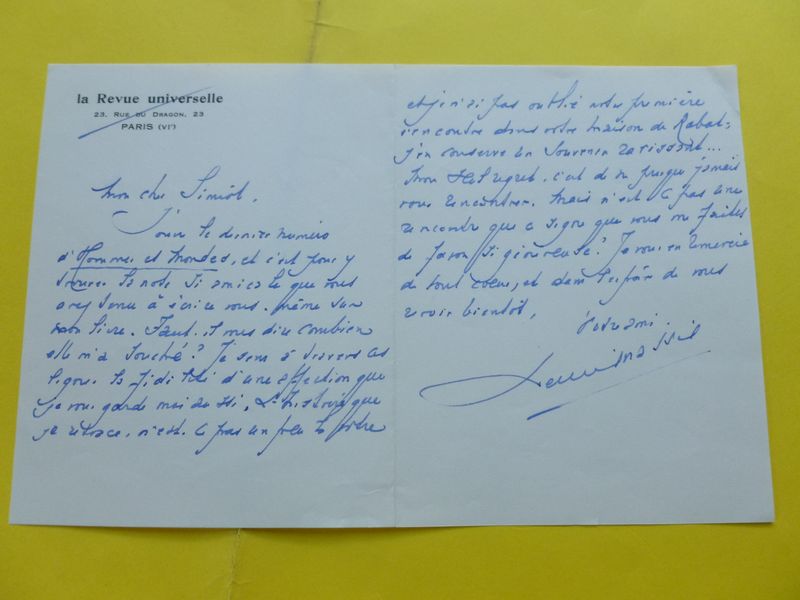 la Revue universelle
23, RUE DU DRAGON, 23
PARIS (VIe)
Mon cher Siniot,
J'ouvre le dernier numéro
d'Hommes et Mondes, et c'est pour y
trouver la note si amicale que vous
avez tenu à écrire vous-même sur
mon livre. Faut-il vous dire combien
elle m'a touché ? Je sens à travers ces
lignes la fidélité d'une affection que
je vous garde moi aussi. L'histoire que
je retrace, n'est-ce pas un peu la vôtre
et je n'ai pas oublié notre première
rencontre dans votre maison de Rabat :
j'en conserve un souvenir ravissant...
Mon seul regret, c'est de ne presque jamais
vous rencontrer. Mais n'est-ce pas une
rencontre que ce signe que vous me faites
de façon si généreuse ? Je vous en remercie
de tout coeur, et dans l'espoir de vous
revoir bientôt,
votre ami
Henri Massis